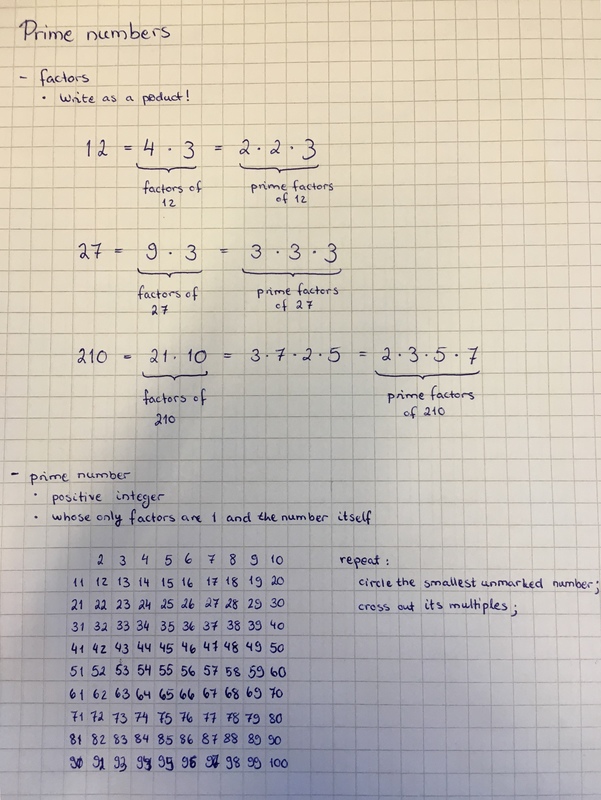 Prime numbers
- factors
• Write as a poduct!
12 = 4 · 3 = 2 · 2 · 3
factors of 12
prime factors of 12
27 = 9 · 3 = 3 · 3 · 3
factors of 27
prime factors of 27
210 = 21 · 10 = 3 · 7 · 2 · 5 = 2 · 3 · 5 · 7
factors of 210
prime factors of 210
- prime number
• positive integer
• whose only factors are 1 and the number itself
2 3 4 5 6 7 8 9 10
11 12 13 14 15 16 17 18 19 20
21 22 23 24 25 26 27 28 29 30
31 32 33 34 35 36 37 38 39 40
41 42 43 44 45 46 47 48 49 50
51 52 53 54 55 56 57 58 59 60
61 62 63 64 65 66 67 68 69 70
71 72 73 74 75 76 77 78 79 80
81 82 83 84 85 86 87 88 89 90
92 93 95 96 98 99 100
repeat:
circle the smallest unmarked number;
cross out its multiples;